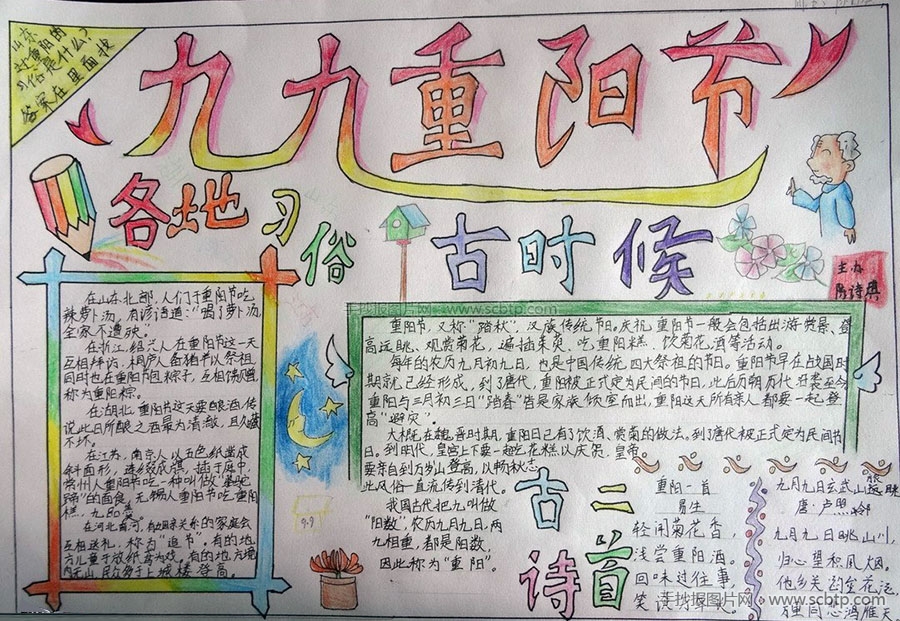 山东
赴重阳的
习俗是什么?
答案在里面找
九九重阳节
各地习俗
古时候
主办
在山东北部,人们于重阳节吃
辣萝卜汤,有谚语道:“喝了萝卜汤,
全家不遭殃。”
在浙江,绍兴人在重阳节这一天
互相拜访,
同时也在重阳节包粽子,互相馈赠,
称为重阳粽。
在湖北,重阳节这天要酿酒,传
说此日所酿之酒最为清澈,且久藏
不坏。
在江苏,南京人以五色纸凿成
斜面形,连缀成旗,插于庭中。
常州人重阳节吃一种叫做
的面食,无锡人重阳节吃重阳
糕、九品羹
在河北香河,有姻亲关系的家庭会
互相送礼,称为“追节”,有的地
方儿童于放纸鸢为戏,有的地方境
内无山,民众多上城楼登高。
重阳节,又称“踏秋”,汉族传统节日。庆祝重阳节一般会包括出游赏景、登
高远眺、观赏菊花、遍插茱萸、吃重阳糕、饮菊花酒等活动。
每年的农历九月初九日,也是中国传统四大祭祖的节日。重阳节早在战国时
期就已经形成,到了唐代,重阳被正式定为民间的节日,此后历朝历代沿袭至今。
重阳与三月初三日“踏春”皆是家族倾室而出,重阳这天所有亲人都要一起登
高“避灾”。
大概在魏晋时期,重阳日已有了饮酒、赏菊的做法。到了唐代被正式定为民间节
日。到明代,皇宫上下要一起吃花糕以庆贺,皇帝
要亲自到万岁山登高,以畅秋志,
此风俗一直流传到清代。
我国古代把九叫做
“阳数”,农历九月九日,两
九相重,都是阳数,
因此称为“重阳”。
9.9
古诗二首
重阳一首
易生
轻闻菊花香,
浅尝重阳酒。
回味过往事,
笑
九月九日玄武山旅眺
唐·卢照邻
九月九日眺山川,
归心望积风烟。
他乡共酌金花酒,
万里同悲鸿雁天
手抄报图片网 www.scbtp.com
手抄报图片网 www.scbtp.com